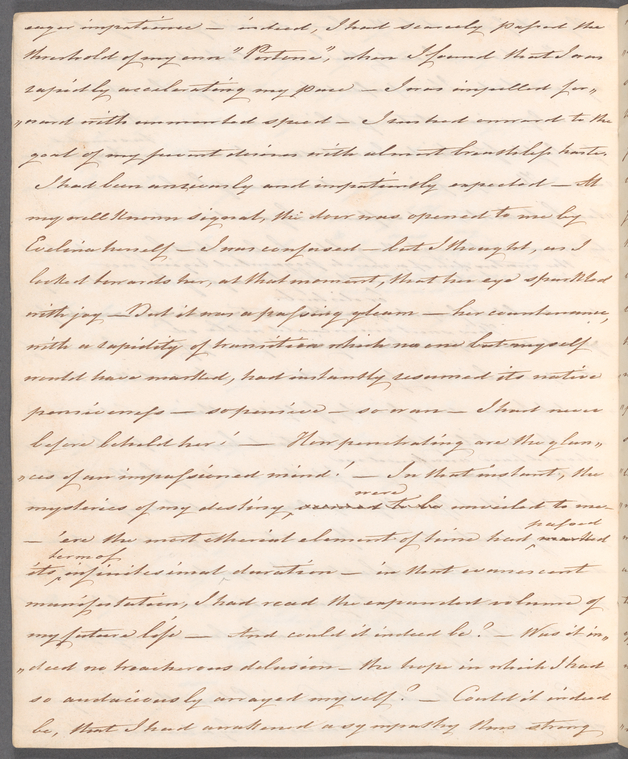 eager impatience — indeed, I had scarcely passed the
threshold of my own "Posterne", when I found that I was
rapidly accelerating my pace — I was impelled for„
„ward with unwonted speed — I rushed onward to the
goal of my fervent desires with almost breathless haste.
I had been anxiously and impatiently expected — At
my well known signal, the door was opened to me by
Evelina herself — I was confused — but I thought, as I
looked towards her, at that moment, that her eye sparkled
with joy — But it was a passing gleam — her countenance,
with a rapidity of transition which no one but myself
would have marked, had instantly resumed its native
pensiveness — so pensive — so wan — I had never
before beheld her! — How penetrating are the glan„
„ces of an impassioned mind! — In that instant, the
were
mysteries of my destiny, seemed to be unveiled to me
passed
— 'ere the most etherial element of time had marked
term of
its infinitesimal duration — in that evanescent
manifestation, I had read the expanded volume of
my future life — And could it indeed be? — Was it in„
„deed no treacherous delusion — the hope in which I had
so audaciously arrayed myself? — Could it indeed
be, that I had awakened a sympathy thus strong